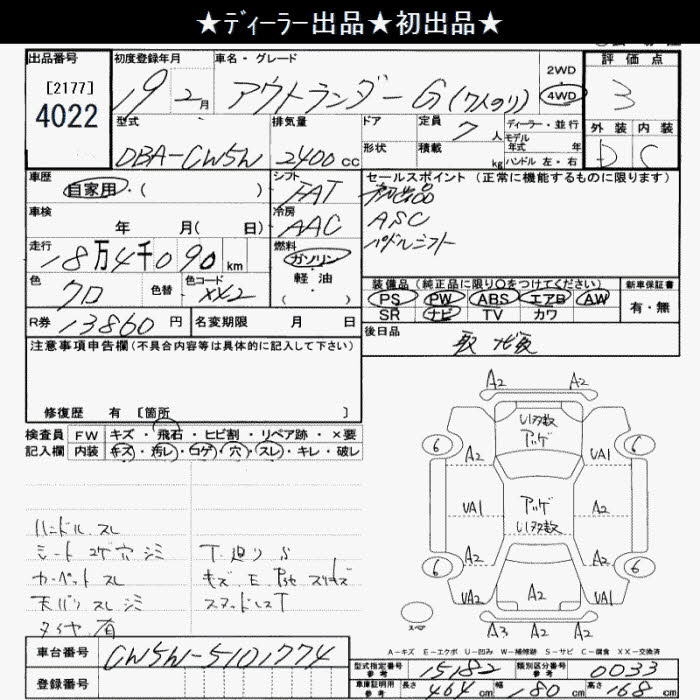 ★ディーラー出品★初出品★
出品番号 初度登録年月 車名・グレード 2WD 評価点
[2177] 19 2月 アウトランダー G (7人のり) 4WD 3
4022
型式 排気量 ドア 定員 7人 ディーラー・並行 外装 内装
DBA-CW5W 2400cc 形状 積載 kg モデル年式 年 D C
ハンドル 左・右
車歴 シフト セールスポイント(正常に機能するものに限ります)
自家用・( ) FAT 初出品
車検 冷房 ASC
年 月( 日) AAC パドルシフト
走行 燃料
18万4千090km ガソリン
色 色替 色コード 軽油 装備品(純正品に限り○をつけてください) 新車保証書
クロ XX2 ・( ) PS PW ABS エアB AW 有・無
SR ナビ TV カワ
R券 13860円 名変期限 月 日 後日品
取 記取
注意事項申告欄(不具合内容等は具体的に記入して下さい)
修復歴 有 [箇所 ]
検査員 FW キズ・飛石・ヒビ割・リペア跡・×要
記入欄 内装 キズ・汚レ・コゲ・穴・スレ・キレ・破レ
ハンドル スレ
シート コゲ穴 シミ T.廻り S
カーペット スレ キズ E
天バリ スレ シミ スタッドレスT
タイヤ 有
A2 A2
いい多数
アッゲ
6 A2 UA1 6
UA1 アッゲ A2
いい多数
A2 A2
6 6
UA2 A2 A2
スペア A3 A2 A2
A-キズ E-エクボ U-凹み W-補修跡 S-サビ C-腐食 XX-交換済
車台番号 CW5W-5101774
型式指定番号 参考 15182 類別区分番号 参考 0033
登録番号
車庫証明用 参考 長さ 464cm 幅 180cm 高さ 168cm